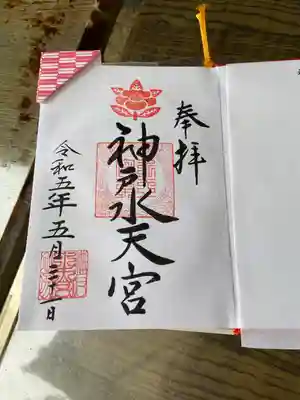 奉拝
神戸水天宮
令和五年五月三十一日